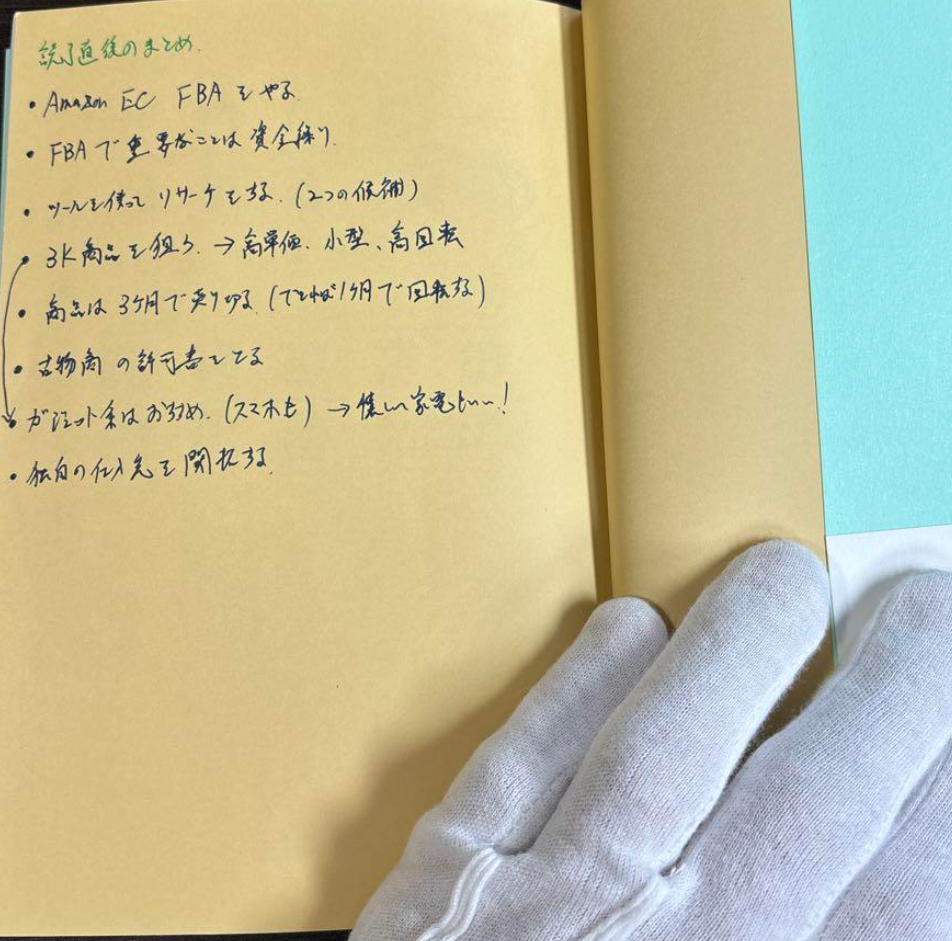 読了直後のまとめ.
・Amazon EC FBAをやる
・FBAで重要なことは資金繰り.
・ツールを使ってリサーチをする.(2つの候補)
・3K商品を狙う.→高単価、小型、高回転
・商品は3ヶ月で売り切る.(できれば1ヶ月で回転する)
・古物商の許可書をとる
・ガジェット系はおすすめ.(スマホも)→懐しい家電もいい!
・独自の仕入先を開拓する.